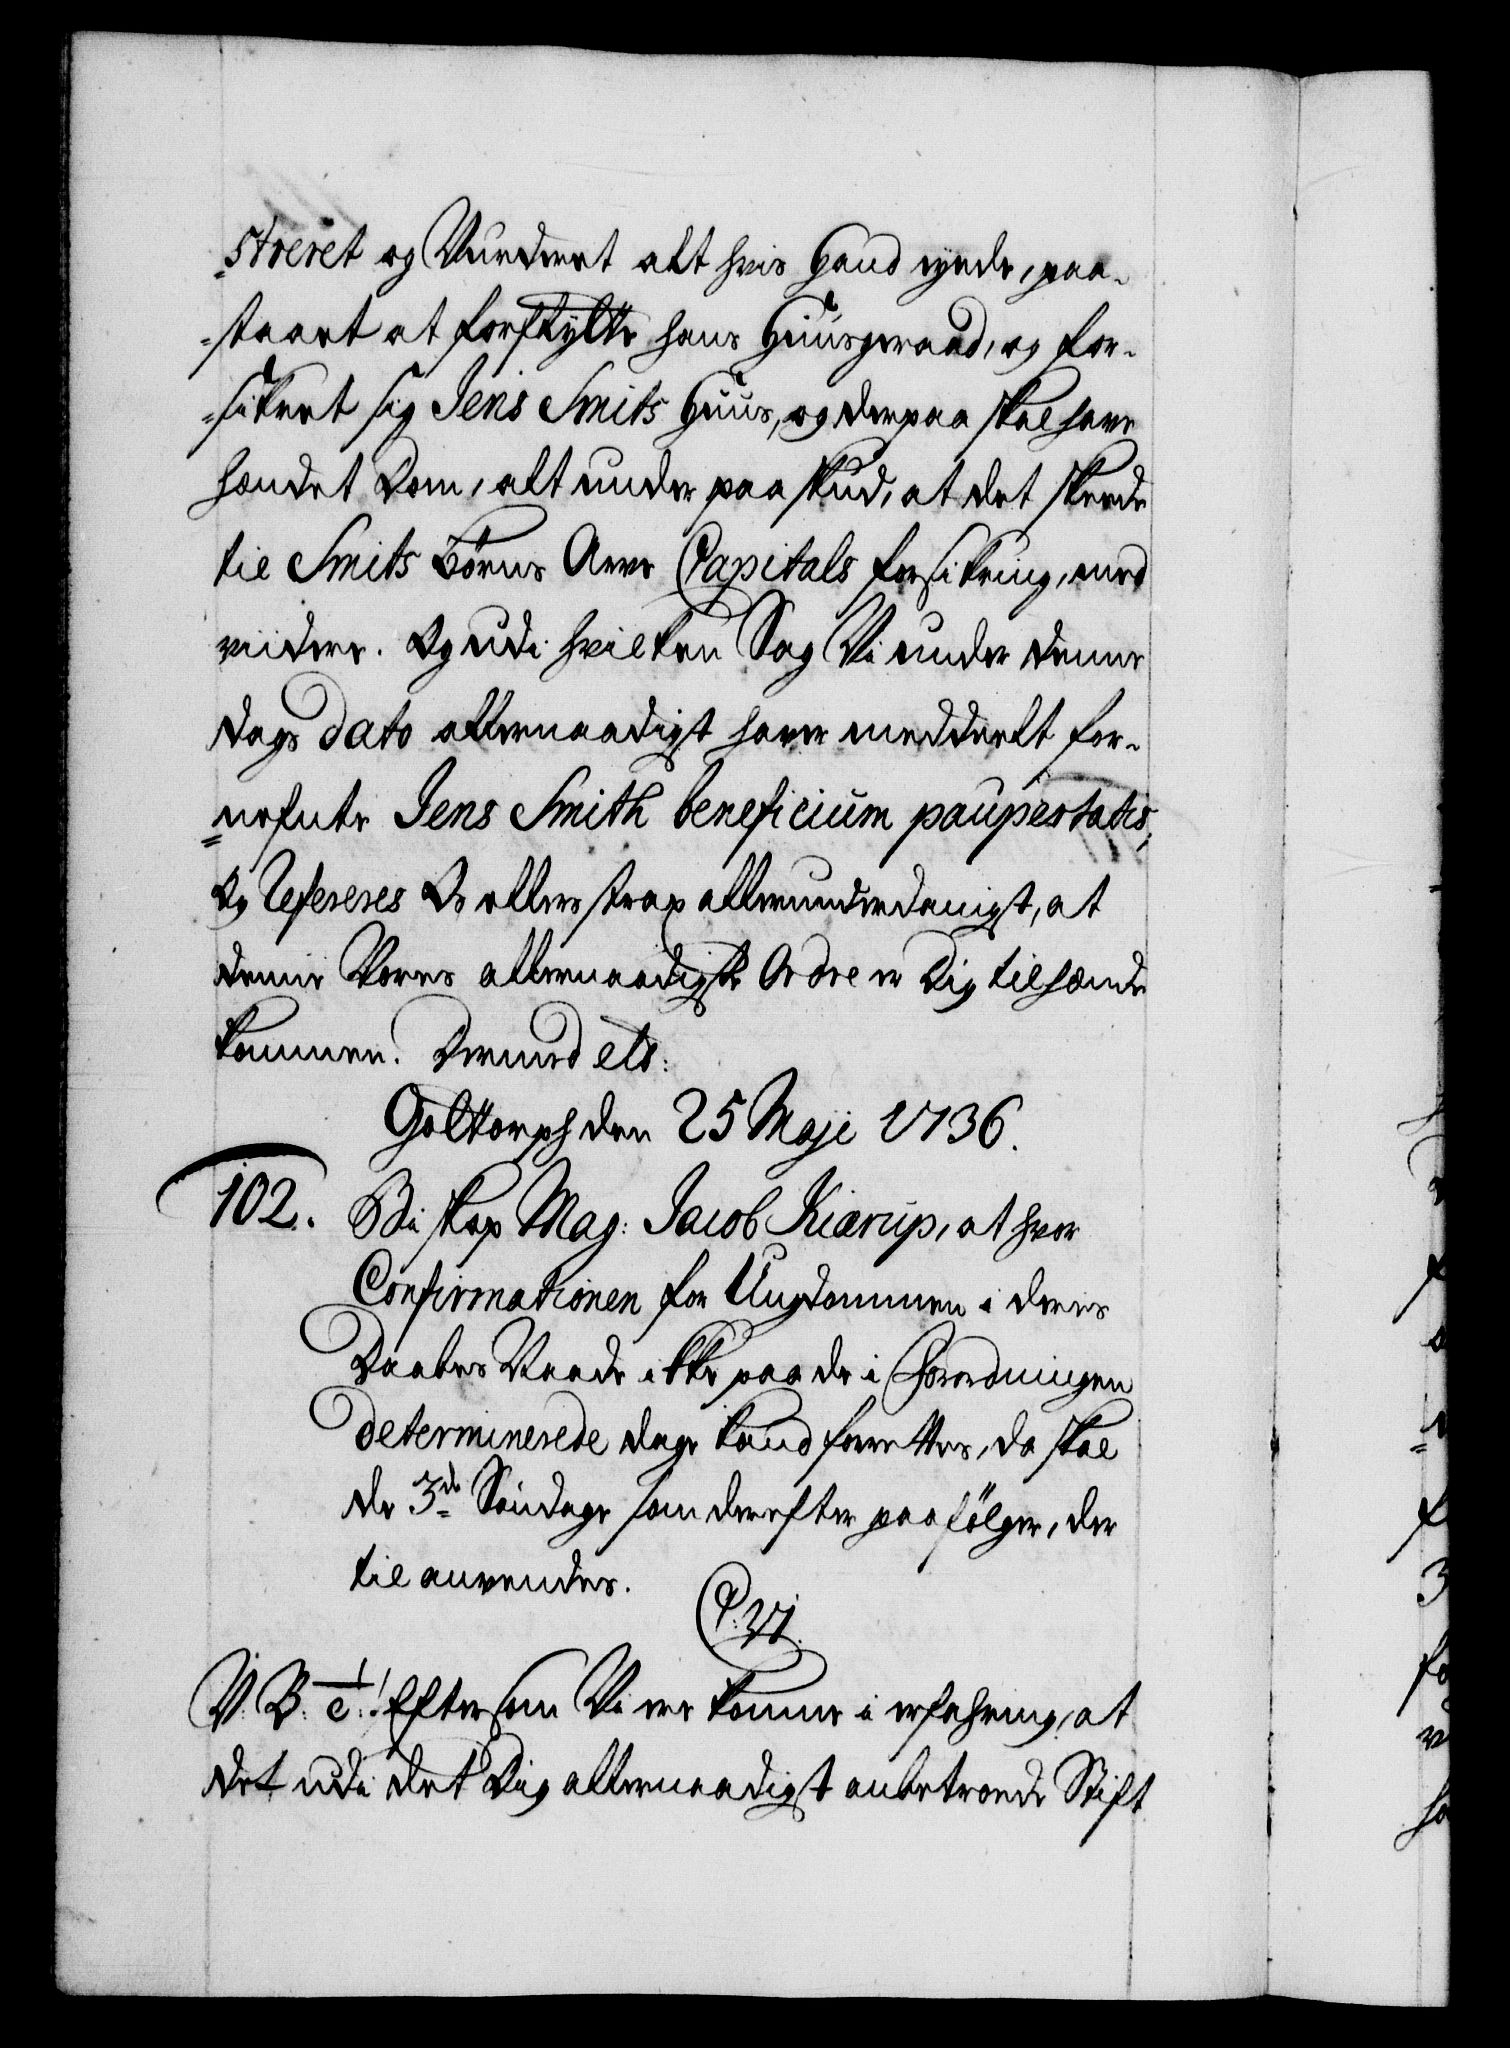 =streret og Vurderet alt hvis Hand ejede, paa-
=staaet at forflytte hans Huusgeraad, og for-
=sikret sig Jens Smits Huus, og derpaa skal have
hændet Dom, alt under paaskud, at det skeede
til Smits Börns Arve Capitals forsikring, med
viidere. Og udi hvilken Sag Vi under denne
dags dato allernaadigst haver meddeelt for-
=nefnte Jens Smith beneficium paupertatis,
Og Refereres Os ellers strax allerunderdanigst, at
denne Vores allernaadigste Ordre er Dig tilhænde
kommen. Dermed etc:
Gottorph den 25 Maji 1736.
102. Biskop Mag: Jacob Kiærup, at hvor
Confirmationen for Ungdommen i deres
Daabes Naade ikke paa de i Forordningen
determinerede dage kand forrettes, da skal
de 3de Söndage som derefter paafölger, der
til anvendes.
C: VI.
V: B: c: Eftersom Vi ere komne i erfahring, at
det udi det Dig allernaadigst anbetroede Stift